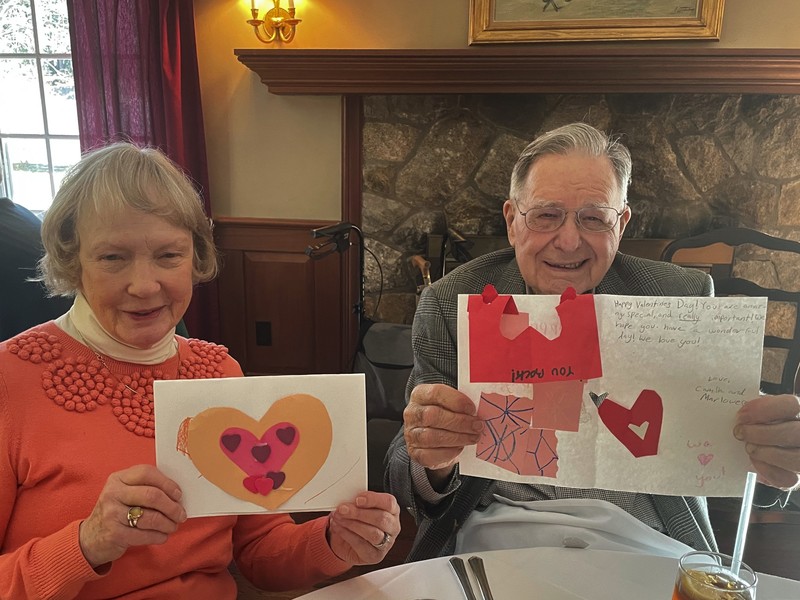 Happy Valentines Day! You are amazin
ng, special, and really important! We
hope you have a wonderful
day! We love you!
Love,
Camila and
Marlowe
YOU ROCK!
Luv
you!